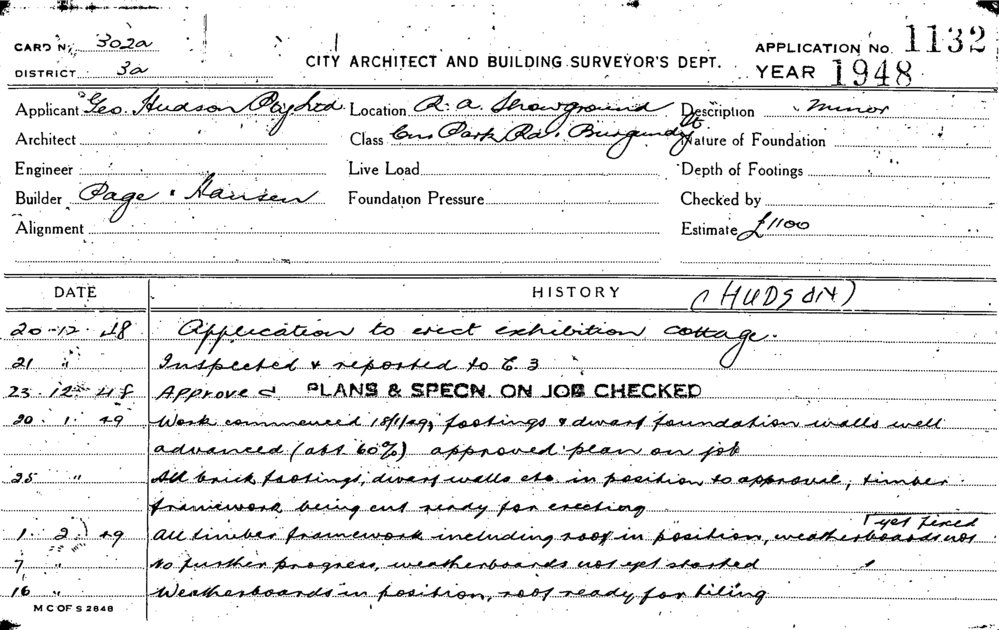 CARD No. 302a
DISTRICT 3a
CITY ARCHITECT AND BUILDING SURVEYOR'S DEPT.
APPLICATION No. 1132
YEAR 1948
Applicant Geo. Hudson Pty Ltd. Location R. A. Showground Description minor
Architect Class Cnr Park Rd. & Burgundy St Nature of Foundation
Engineer Live Load Depth of Footings
Builder Page & Hansen Foundation Pressure Checked by
Alignment Estimate £1100
DATE HISTORY (HUDSON)
20-12-48 Application to erect exhibition cottage.
21 " Inspected & reported to C. 3
23-12-48 Approved PLANS & SPECN. ON JOB CHECKED
20. 1. 49 Work commenced 18/1/49, footings & dwarf foundation walls well
advanced (abt. 60%) approved plan on job
25 " All brick footings, dwarf walls etc. in position to approval, timber
framework being cut ready for erecting
yet fixed
1. 2. 49 All timber framework including roof in position, weatherboards not
7 " No further progress, weatherboards not yet started
16 " Weatherboards in position, roof ready for tiling
M C OF S 2848